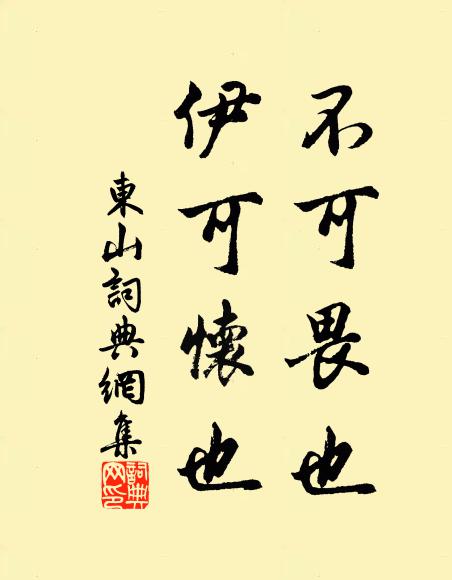 不可畏也
伊可懷也
東山詞典網集
詞典网印